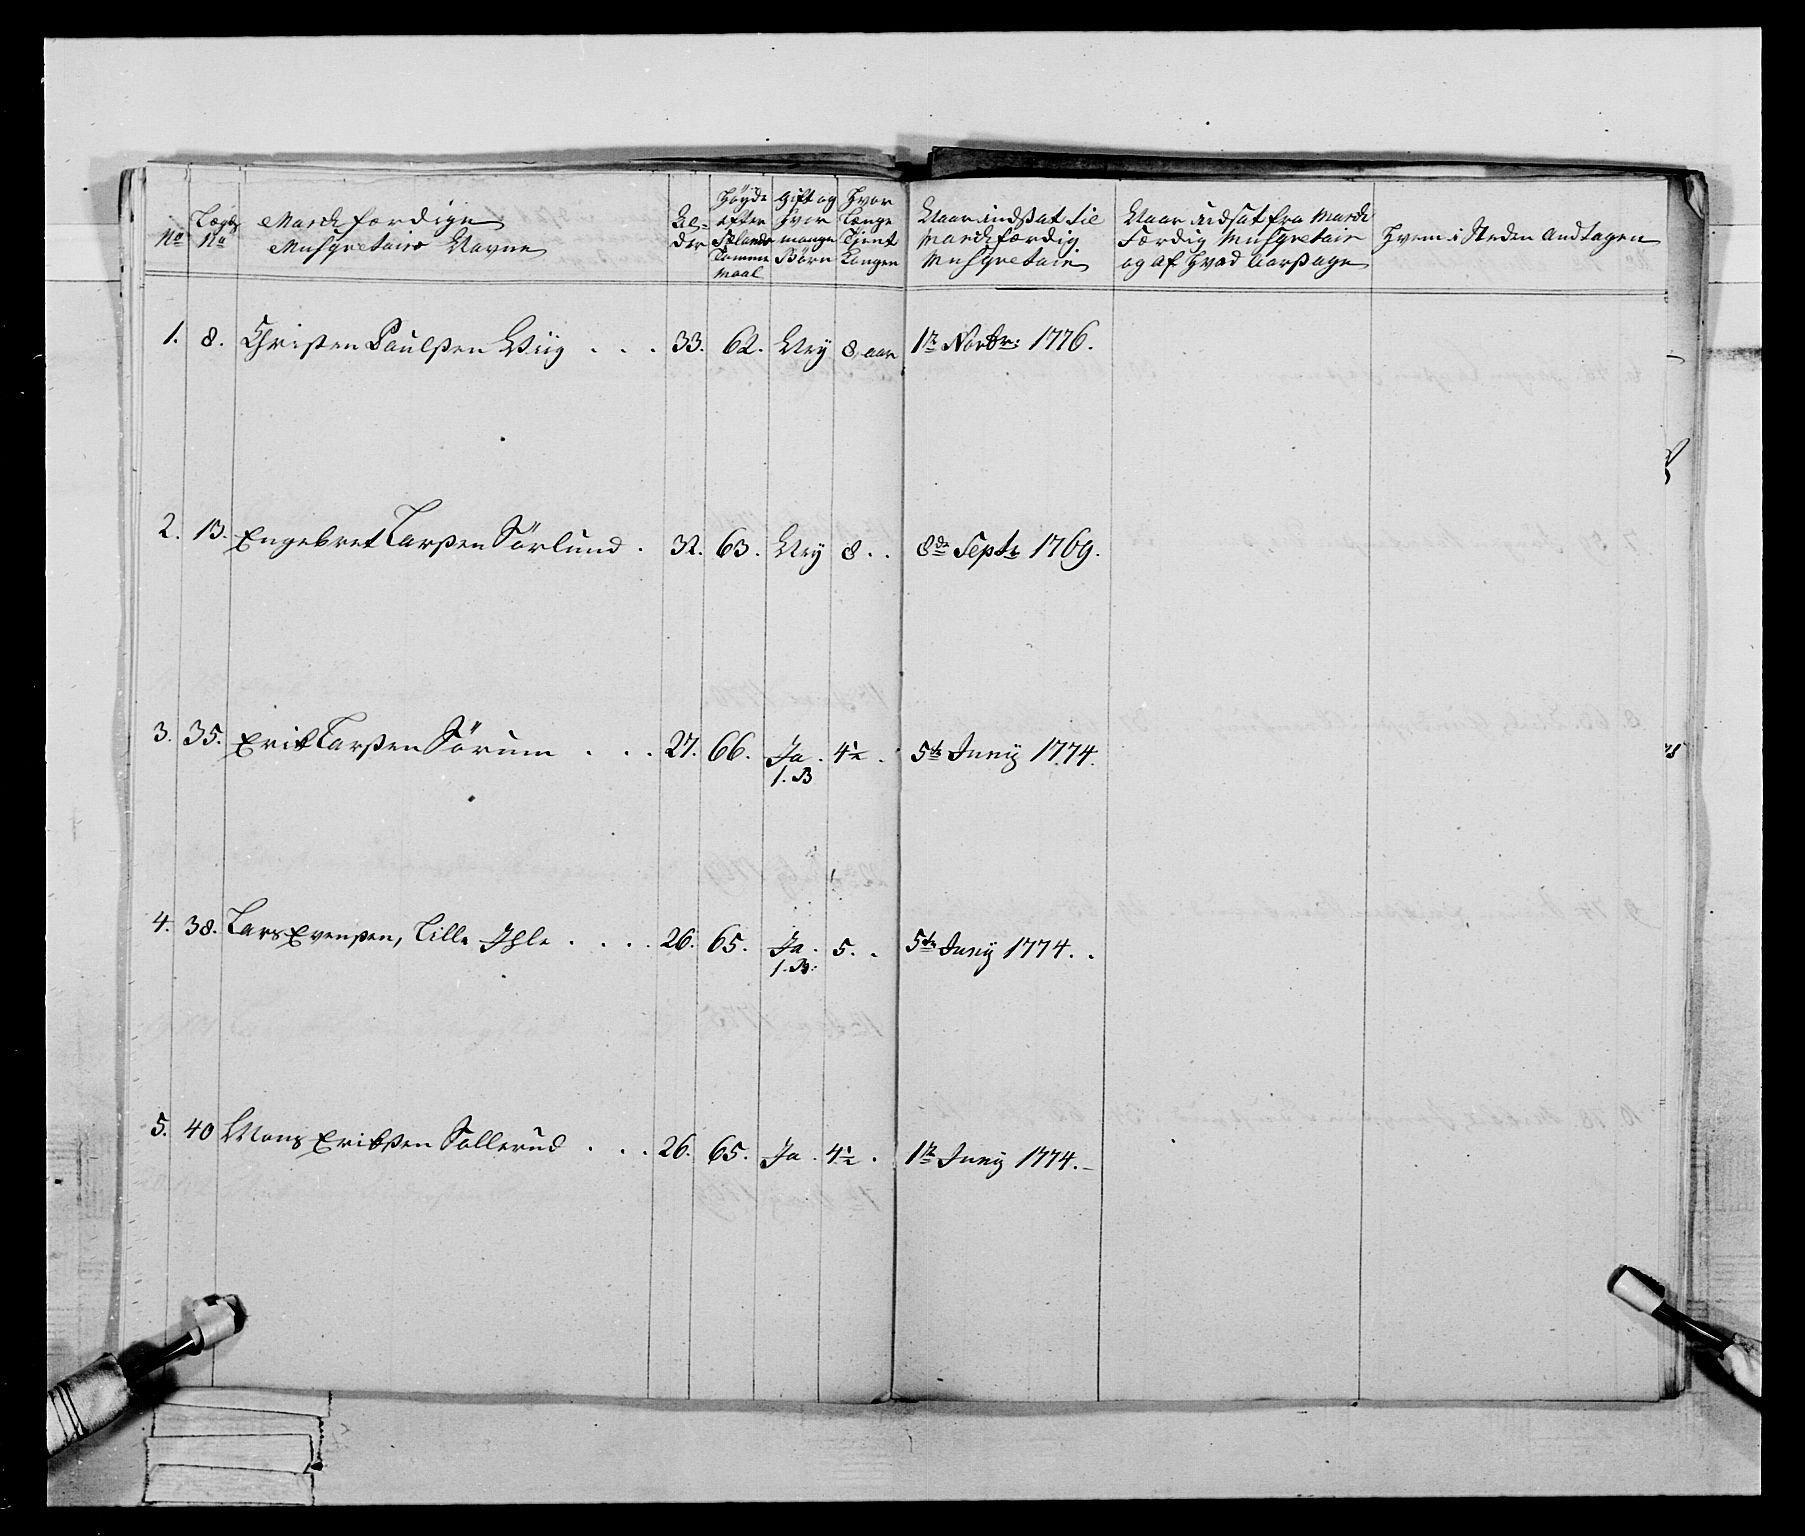 No
Lægds No
Marchfærdige Musqvetairs Navne
Alder
Høyde efter Sælands Tomme Maal
Gift og Hvor mange Børn
Hvor Længe Tient Kongen
Naar indsat til Marchfærdig Musqvetair
Naar udsat fra March Færdig Musqvetair og af Hvad Aarsage
Hvem i Steden Andtagen
1. 8. Christen Paulsen Wiig . . . 33. 62. Ney 8 aar 1te Novbr: 1776.
2. 13. Engebret Larsen Sørlund . 32. 63. Ney 8 . . 8de Septr 1769.
3. 35. Erik Larsen Sørum . . . 27. 66. Ja . 4½ . 5te Juny 1774.
1. B
4. 38. Lars Evensen, Lille Ihle . . . . 26. 65. Ja . 5. . 5te Juny 1774. .
1. B:
5. 40 Mons Eriksen Sollerud . . . 26. 65. Ja . 4½ . 1te Juny 1774.